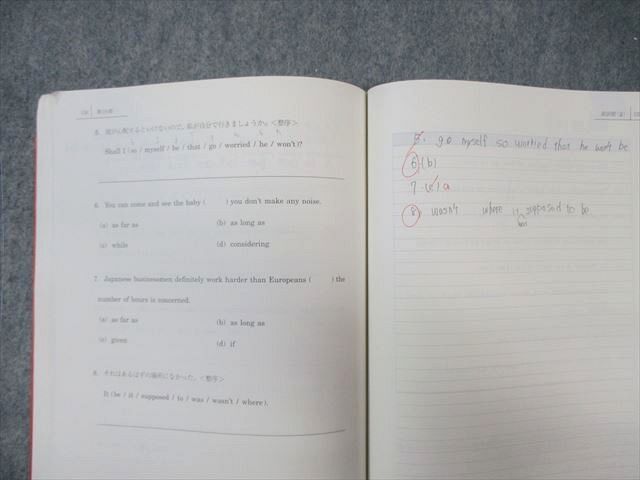 5. 彼が心配するといけないので，私が自分で行きましょうか。＜整序＞
Shall I (so / myself / be / that / go / worried / he / won't)?
6. You can come and see the baby ( ) you don't make any noise.
(a) as far as
(b) as long as
(c) while
(d) considering
7. Japanese businessmen definitely work harder than Europeans ( ) the
number of hours is concerned.
(a) as far as
(b) as long as
(c) given
(d) if
8. それはあるはずの場所になかった。＜整序＞
It (be / it / supposed / to / was / wasn't / where).
5. go myself so worried that he won't be
6 (b)
7 (c) a
8. wasn't where it supposed to be
was